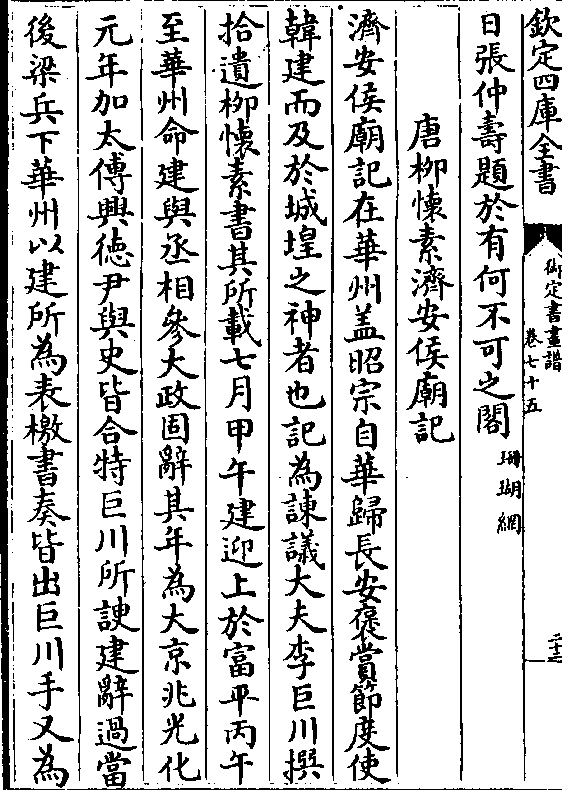 欽定四庫全書
御定書畫譜
卷七十五
二十三
日張仲壽題於有何不可之閣珊瑚網
唐柳懷素濟安侯廟記
濟安侯廟記在華州盖昭宗自華歸長安褒賞節度使
韓建而及於城隍之神者也記為諫議大夫李巨川撰
拾遺柳懷素書其所載七月甲午建迎上於富平丙午
至華州命建與丞相參大政固辭其年為大京兆光化
元年加太傅興徳尹與史皆合特巨川所諛建辭過當
後梁兵下華州以建所為表檄書奏皆出巨川手又為